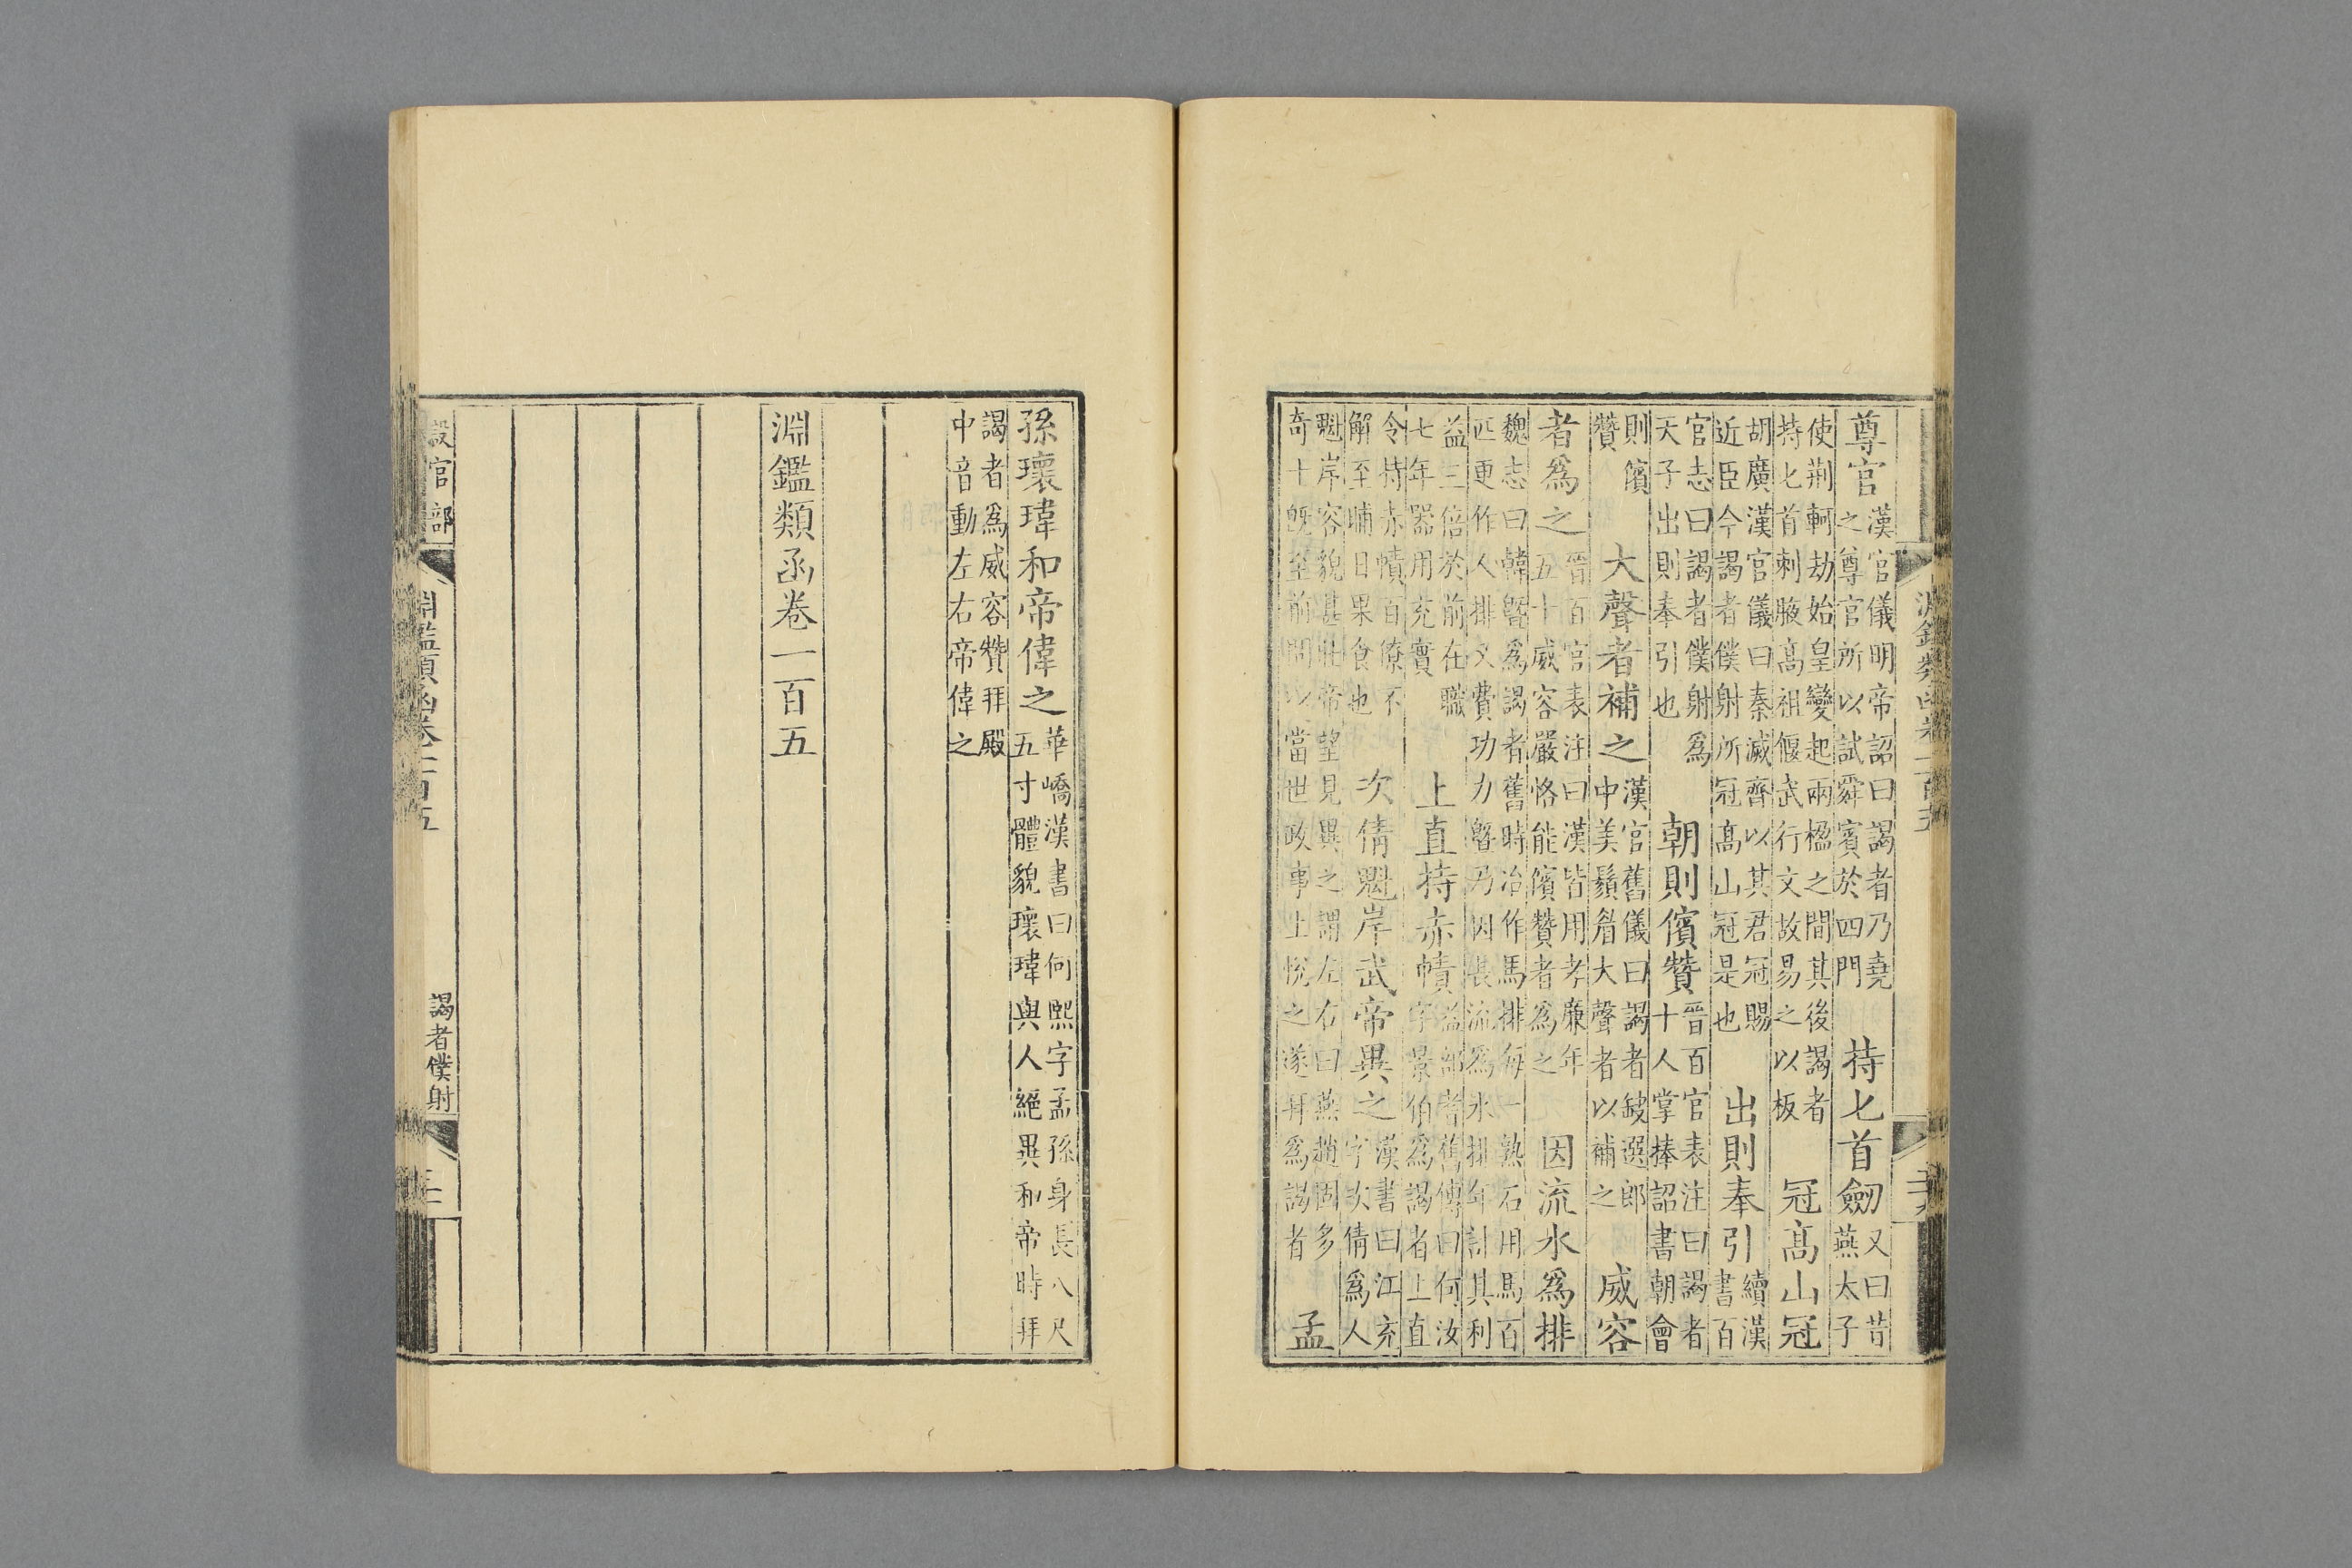 淵鑑類函卷一百五
尊官漢官儀明帝詔曰謁者乃堯之尊官所以試舜賓於四門 持匕首劒又曰昔燕太子
使荆軻劫始皇變起兩楹之間其後謁者持匕首刺腋髙祖偃武行文故易之以板 冠髙山冠
胡廣漢官儀曰秦滅齊以其君冠賜近臣今謁者僕射所冠髙山冠是也 出則奉引續漢書百
官志曰謁者僕射爲天子出則奉引也 朝則儐贊晉百官表注曰謁者十人掌捧詔書朝會
則儐贊 大聲者補之漢官舊儀曰謁者缺選郎中美鬚眉大聲者以補之 威容
者爲之晉百官表注曰漢皆用孝廉年五十威容嚴恪能儐贊者爲之 因流水爲排
魏志曰韓曁爲謁者舊時冶作馬排每一熟石用馬百匹更作人排又費功力曁乃因長流爲水排年計其利
益三倍於前在職七年器用充實 上直持赤幘益部耆舊傳曰何汝字景伯爲謁者上直
令持赤幘百僚不解至晡日果食也 次倩魁岸武帝異之漢書曰江充字次倩爲人
魁岸容貌甚壯帝望見異之謂左右曰燕趙固多奇士旣至前問以當世政事上悅之遂拜爲謁者 孟
孫瓌瑋和帝偉之華嶠漢書曰何熙字孟孫身長八尺五寸體貌瓌瑋與人絕異和帝時拜
謁者爲威容贊拜殿中音動左右帝偉之
淵鑑類函卷一百五
設官部 淵鑑類函卷一百五 謁者僕射